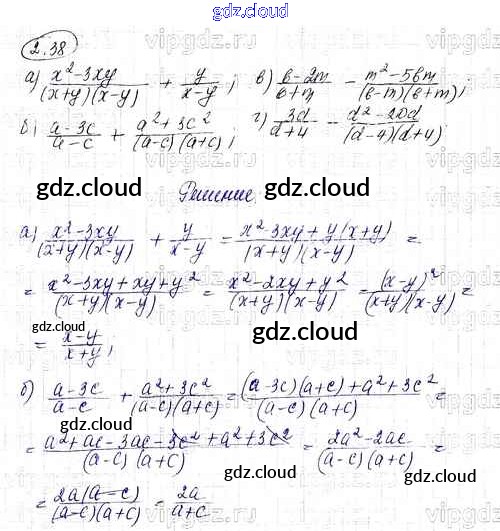 gdz.cloud
2.38
а) (x²-3xy)/((x+y)(x-y)) + y/(x-y); в) (в-2m)/(в+m) - (m²-5вm)/((в-m)(в+m));
б) (a-3c)/(a-c) + (a²+3c²)/((a-c)(a+c)); г) 3d/(d+4) - (d²-20d)/((d-4)(d+4)
gdz.cloud Решение. gdz.cloud
а) (x²-3xy)/((x+y)(x-y)) + y/(x-y) = (x²-3xy+y(x+y))/((x+y)(x-y)) =
= (x²-3xy+xy+y²)/((x+y)(x-y)) = (x²-2xy+y²)/((x+y)(x-y)) = (x-y)²/((x+y)(x-y)) =
gdz.cloud gdz.cloud
= (x-y)/(x+y);
б) (a-3c)/(a-c) + (a²+3c²)/((a-c)(a+c)) = ((a-3c)(a+c)+a²+3c²)/((a-c)(a+c)) =
gdz.cloud
= (a²+ac-3ac-3c²+a²+3c²)/((a-c)(a+c)) = (2a²-2ac)/((a-c)(a+c)) =
gdz.cloud
= 2a(a-c)/((a-c)(a+c)) = 2a/(a+c)
gdz.cloud